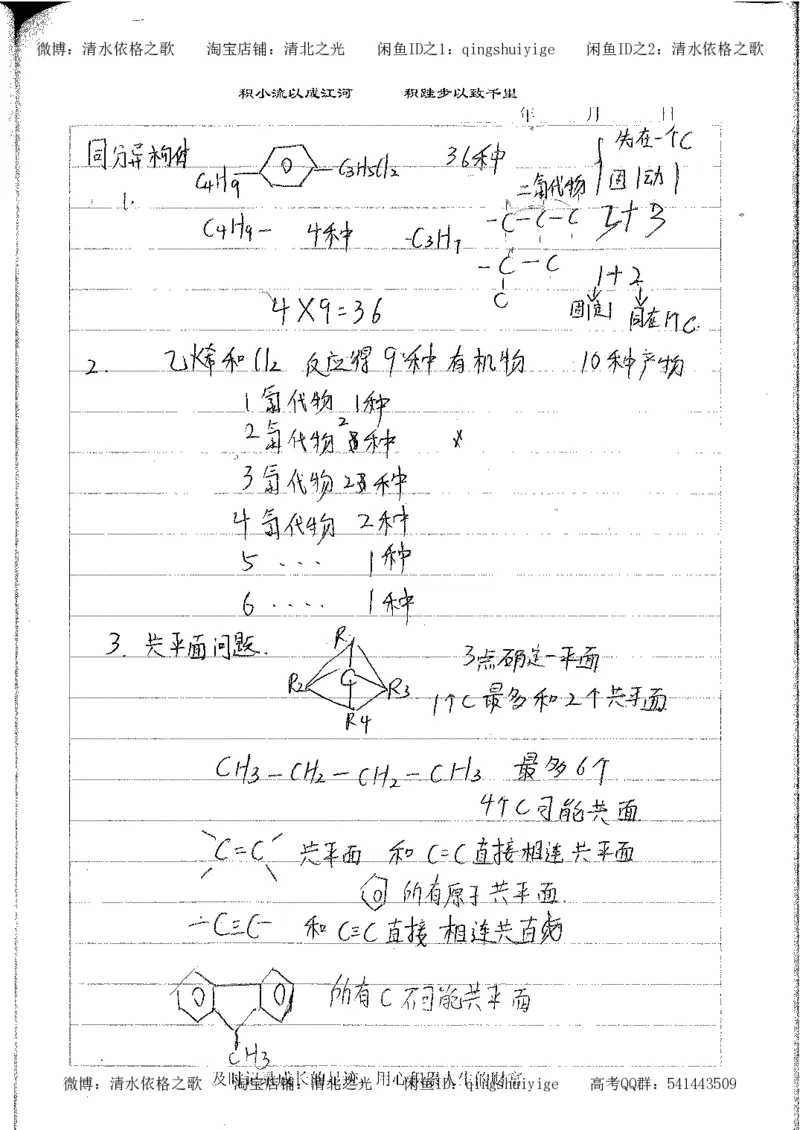 微博：清水依格之歌 淘宝店铺：清北之光 闲鱼ID之1：qingshuiyige 闲鱼ID之2：清水依格之歌
积小流以成江河 积跬步以致千里
年 月 日
同分异构体
1.
C4H9 C3H5Cl2 36种
二氯代物
先在一个C
固1动1
C4H9- 4种 -C3H7
-C-C-C 2+3
-C-C
C
1+2
固定1 同在1个C.
4X9=36
2. 乙烯和Cl2 反应得9种有机物 10种产物
1氯代物 1种
2氯代物 2种 x
3氯代物 2种
4氯代物 2种
5 .... 1种
6 .... 1种
3. 共平面问题.
R1
R2 C R3
R4
3点确定一平面
1个C最多和2个共平面
CH3-CH2-CH2-CH3 最多6个
4个C可能共面
C=C 共平面 和C=C直接相连共平面
所有原子共平面.
-C≡C- 和C≡C直接相连共直线
所有C不可能共平面
CH3
及时记录成长的足迹 用心积累人生的财富
微博：清水依格之歌 淘宝店铺：清北之光 闲鱼ID：qingshuiyige 高考QQ群：541443509